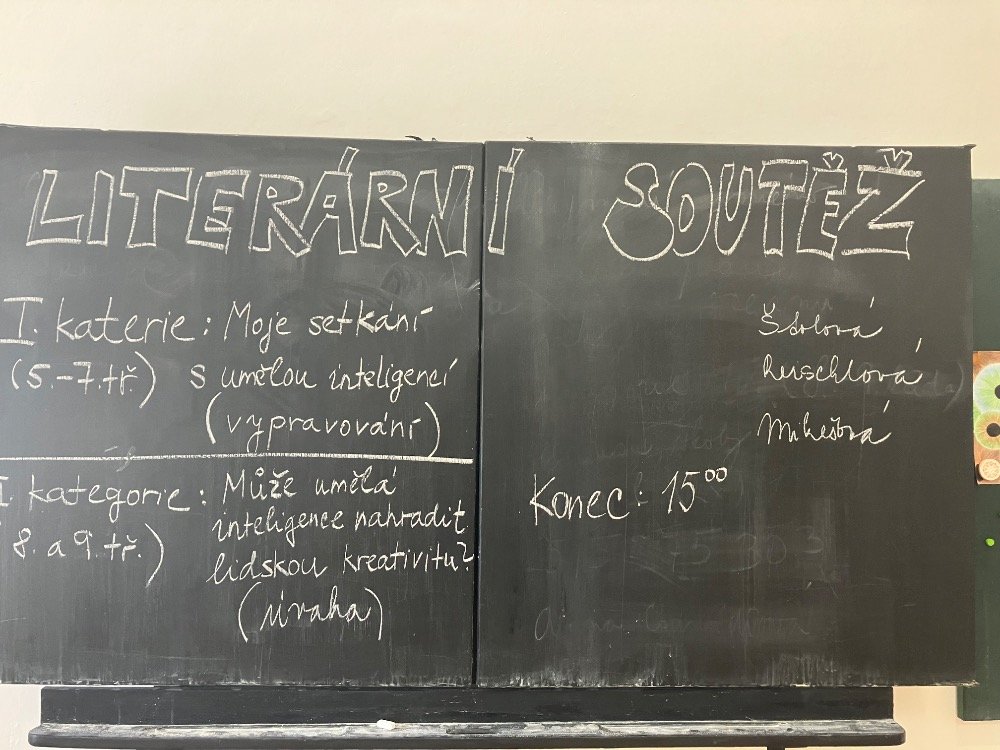 LITERÁRNÍ SOUTĚŽ
I. katerie: Moje setkání
(5.-7.tř) s umělou inteligencí
(vypravování)
I. kategorie: Může umělá
inteligence nahradit
8. a 9. tř.) lidskou kreativitu?
(úvaha)
Šdolová
Reischlová
Mikešová
Konec: 15⁰⁰